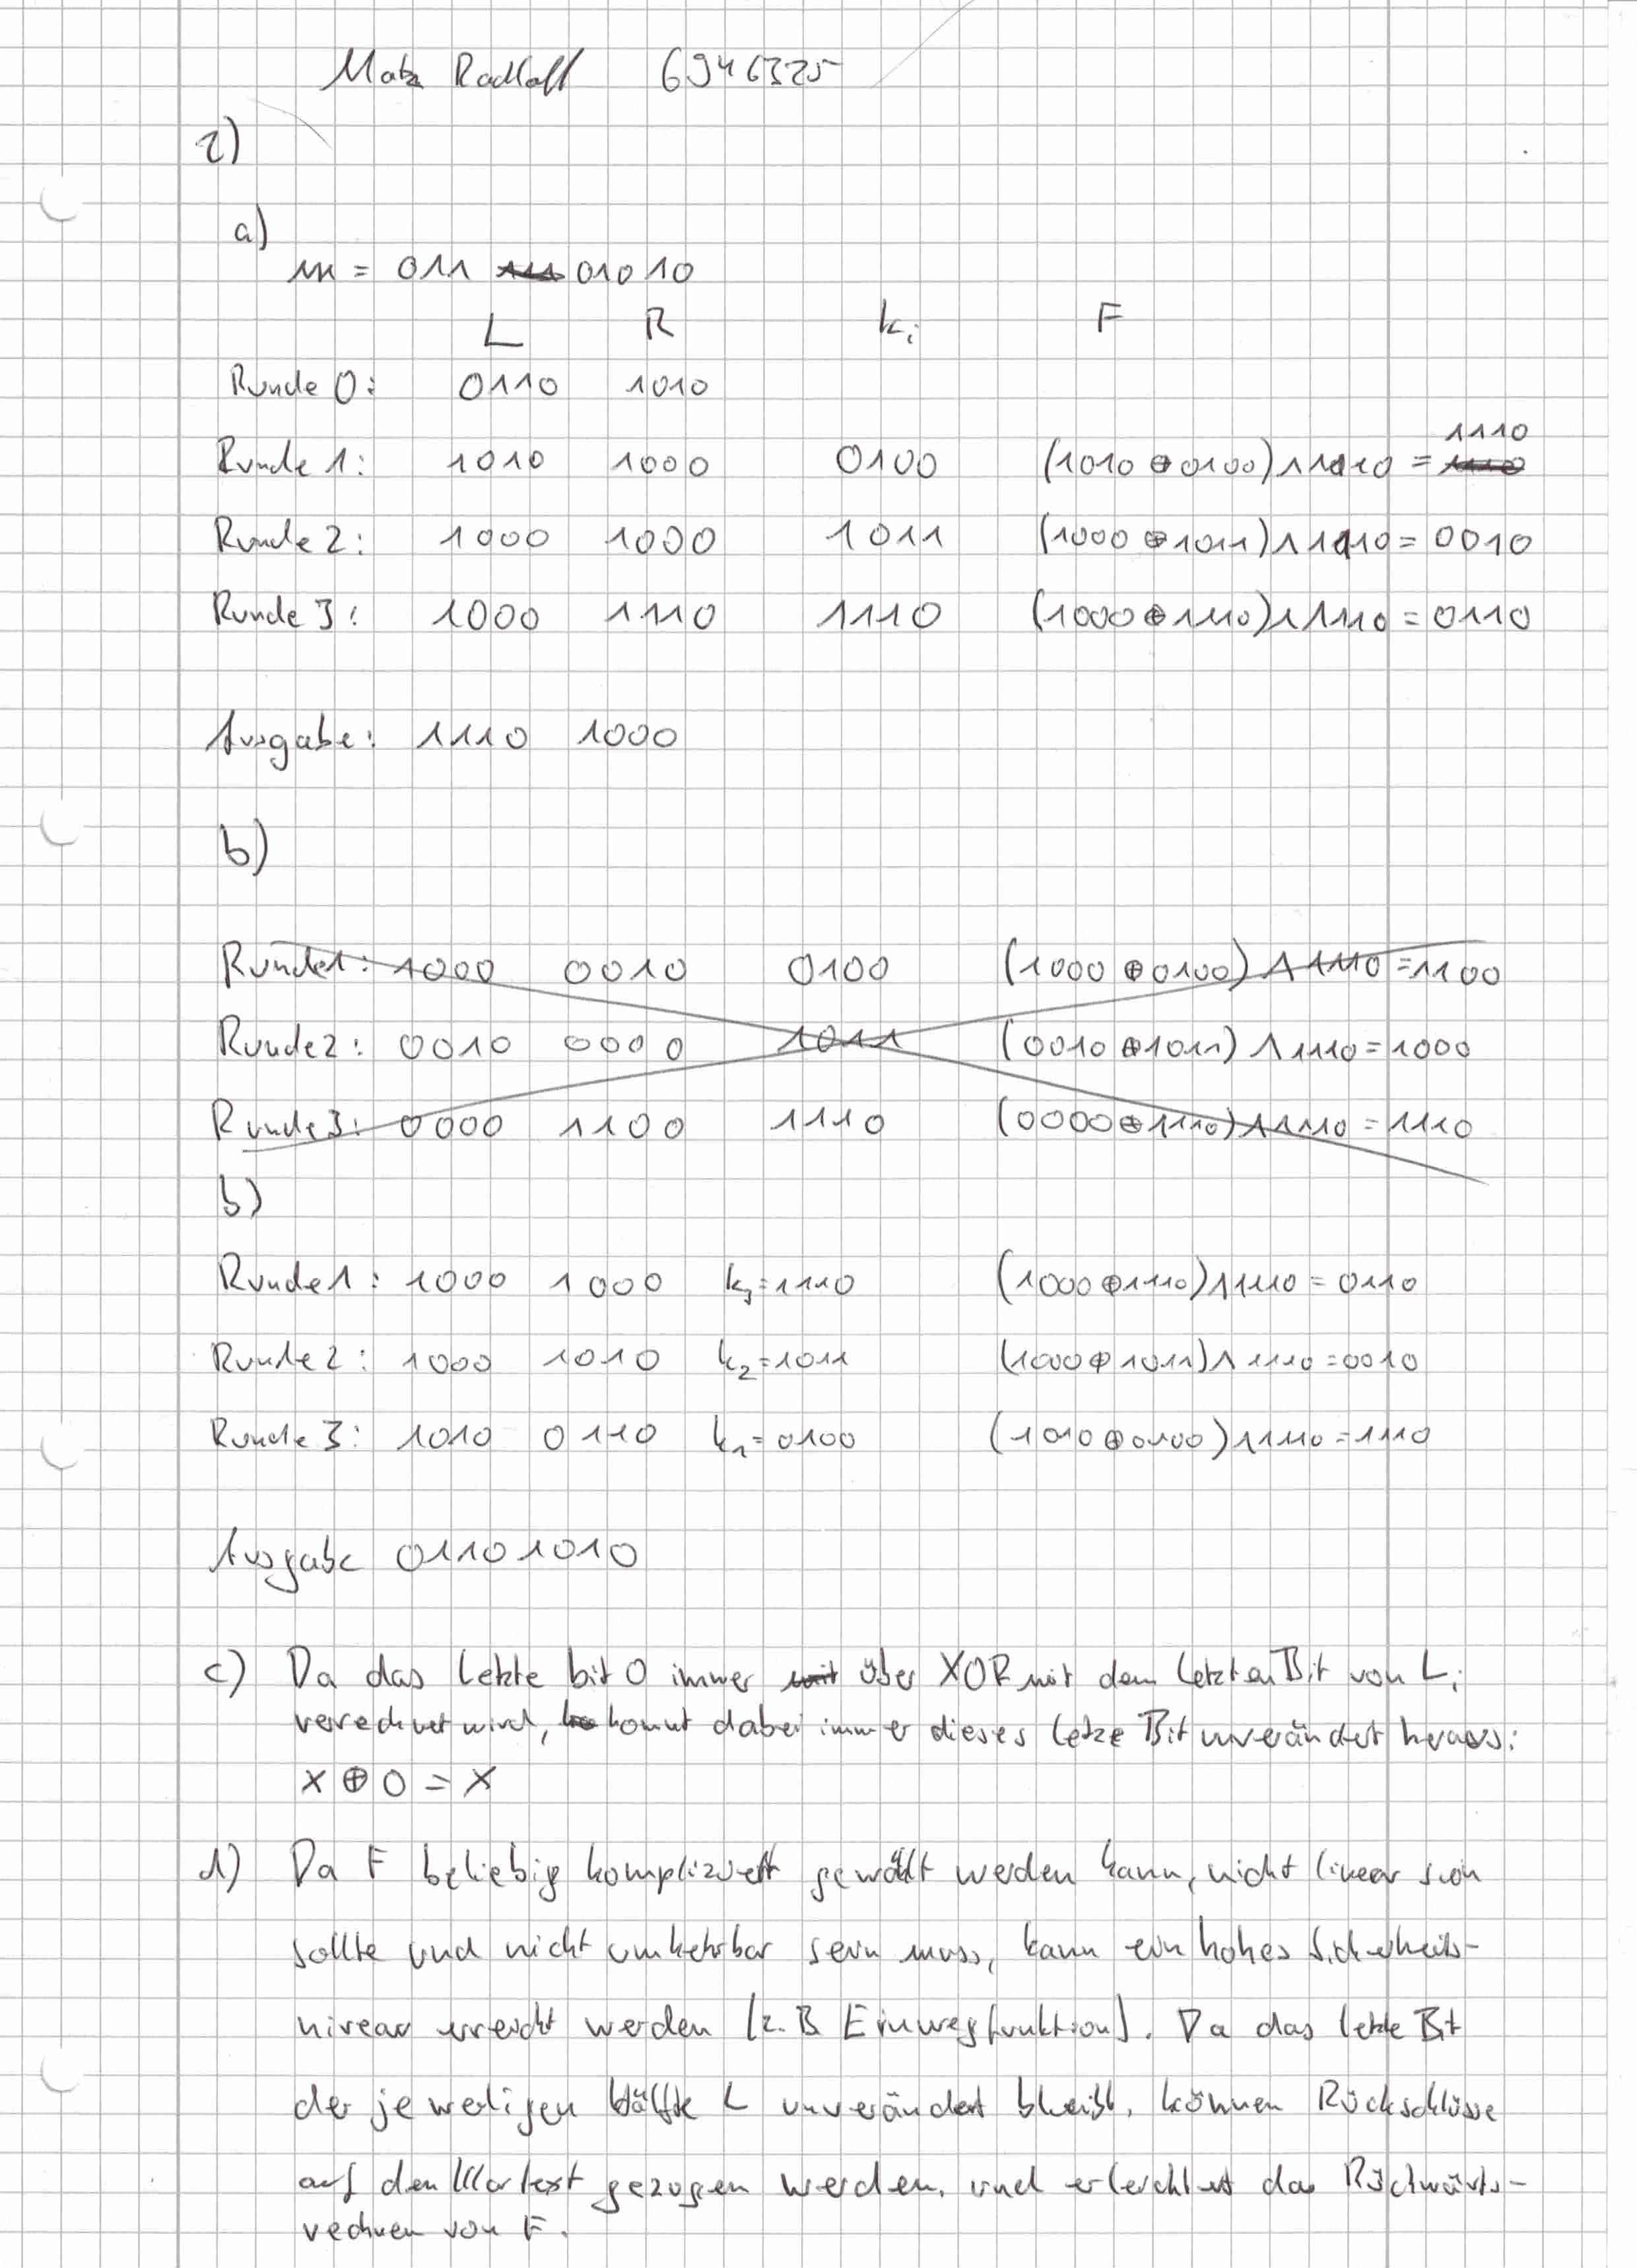 Matz Radloff 6946325
2)
a)
m = 011 01010
L R ki F
Runde 0: 0110 1010
Runde 1: 1010 1000 0100 (1010 ⊕ 0100) ∧ 1110 = 1110
Runde 2: 1000 1000 1011 (1000 ⊕ 1011) ∧ 1110 = 0010
Runde 3: 1000 1110 1110 (1000 ⊕ 1110) ∧ 1110 = 0110
Ausgabe: 1110 1000
b)
Runde 1: 1000 0010 0100 (1000 ⊕ 0100) ∧ 1110 = 1100
Runde 2: 0010 0000 1011 (0010 ⊕ 1011) ∧ 1110 = 1000
Runde 3: 0000 1100 1110 (0000 ⊕ 1110) ∧ 1110 = 1110
b)
Runde 1: 1000 1000 k3=1110 (1000 ⊕ 1110) ∧ 1110 = 0110
Runde 2: 1000 1010 k2=1011 (1000 ⊕ 1011) ∧ 1110 = 0010
Runde 3: 1010 0110 k1=0100 (1010 ⊕ 0100) ∧ 1110 = 1110
Ausgabe 01101010
c) Da das letzte bit 0 immer über XOR mit dem letzten Bit von Li
verrechnet wird, kommt dabei immer dieses letze Bit unverändert heraus:
X ⊕ 0 = X
d) Da F beliebig kompliziert gewählt werden kann, nicht linear sein
sollte und nicht umkehrbar sein muss, kann ein hohes Sicherheits-
niveau erreicht werden (z.B Einwegfunktion). Da das letzte Bit
der jeweiligen Hälfte L unverändert bleibt, können Rückschlüsse
auf den Klartext gezogen werden, und erleichtert das Rückwärts-
rechnen von F.